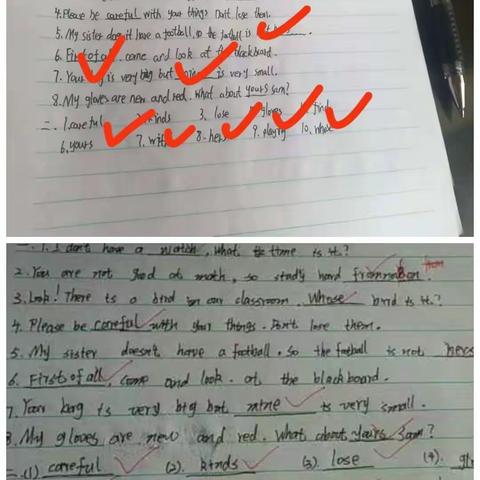 4. Please be careful with your things. Don't lose them.
5. My sister doesn't have a football, so the football is
6. First of all, come and look at the blackboard.
7. Your is very big but is very small.
8. My gloves are new and red. What about yours Sam?
二. 1. careful kinds 3. lose gloves find
6. yours 7. with 8. hers 9. playing 10. what
一. 1. I don't have a watch, what time is it?
2. You are not good at math, so study hard from now on. from
3. Look! There is a bird in our classroom. Whose bird is it?
4. Please be careful with your things. Don't lose them.
5. My sister doesn't have a football. So the football is not hers
6. First of all, come and look at the blackboard.
7. Your bag is very big but mine is very small.
8. My gloves are new and red. What about yours Sam?
二. (1) careful (2). kinds (3). lose (4). gl